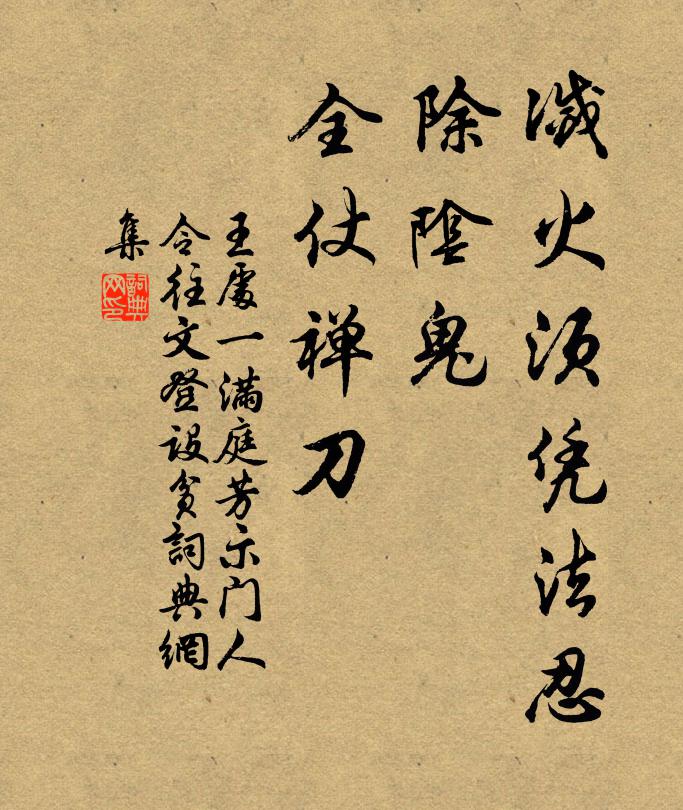 滅火須凭法忍
除陰鬼
全仗禅刀
王處一满庭芳示门人
令往文登設貧詞典網
集
詞典
网印